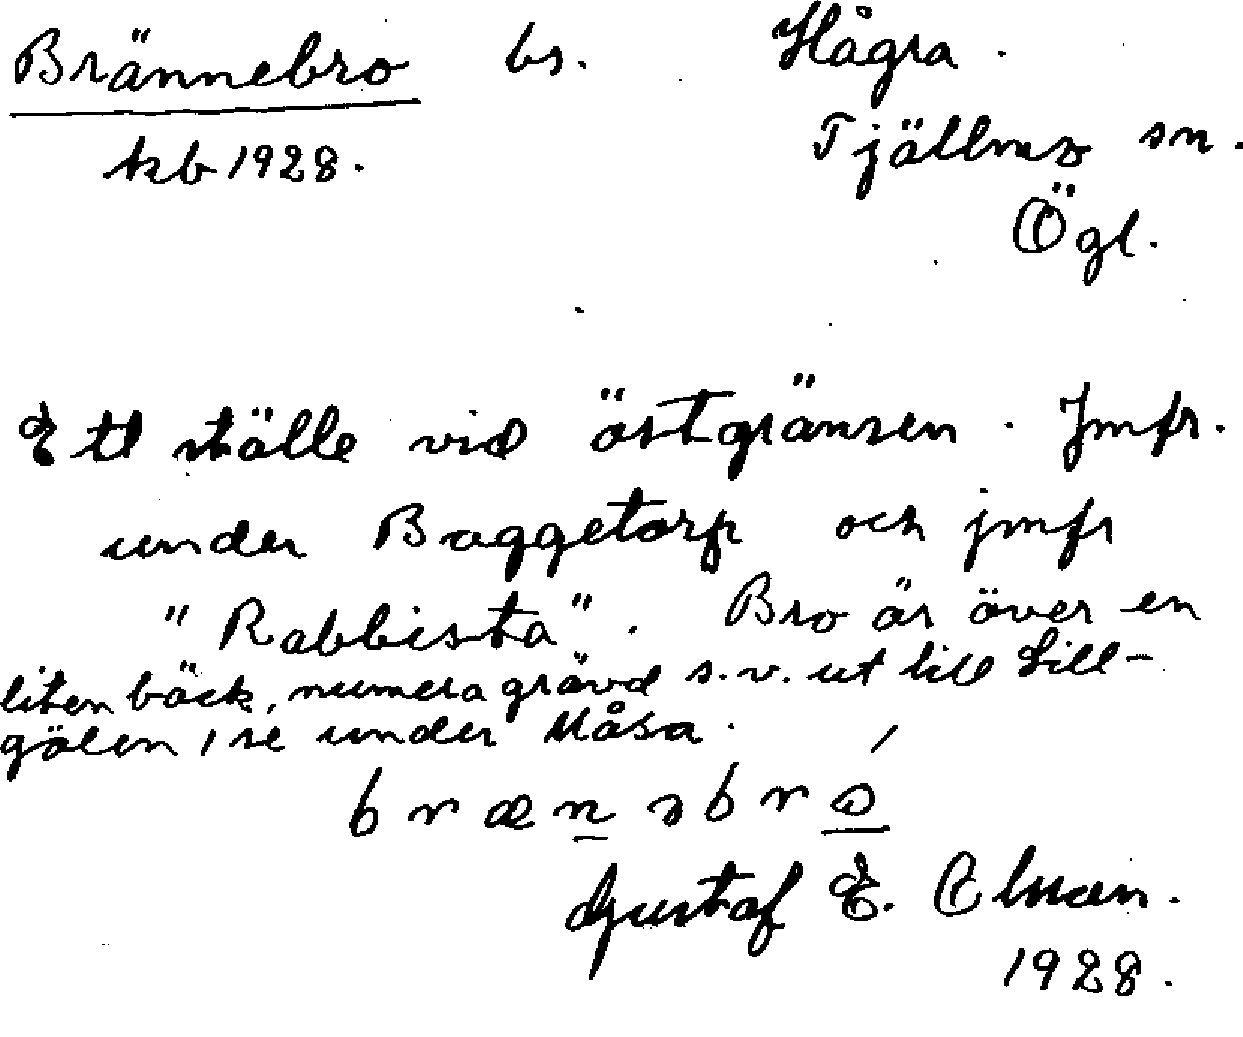 Brännebro bs. Hågra.
kb 1928. Tjällmo sn.
Ögl.
Ett ställe vid östgränsen. Jmfr.
under Baggetorp och jmfr
"Rabbista". Bro är över en
liten bäck, numera grävd s.v. ut till Lill-
gölen, se under Måsa.
brænəbró
Gustaf E. Elman.
1928.